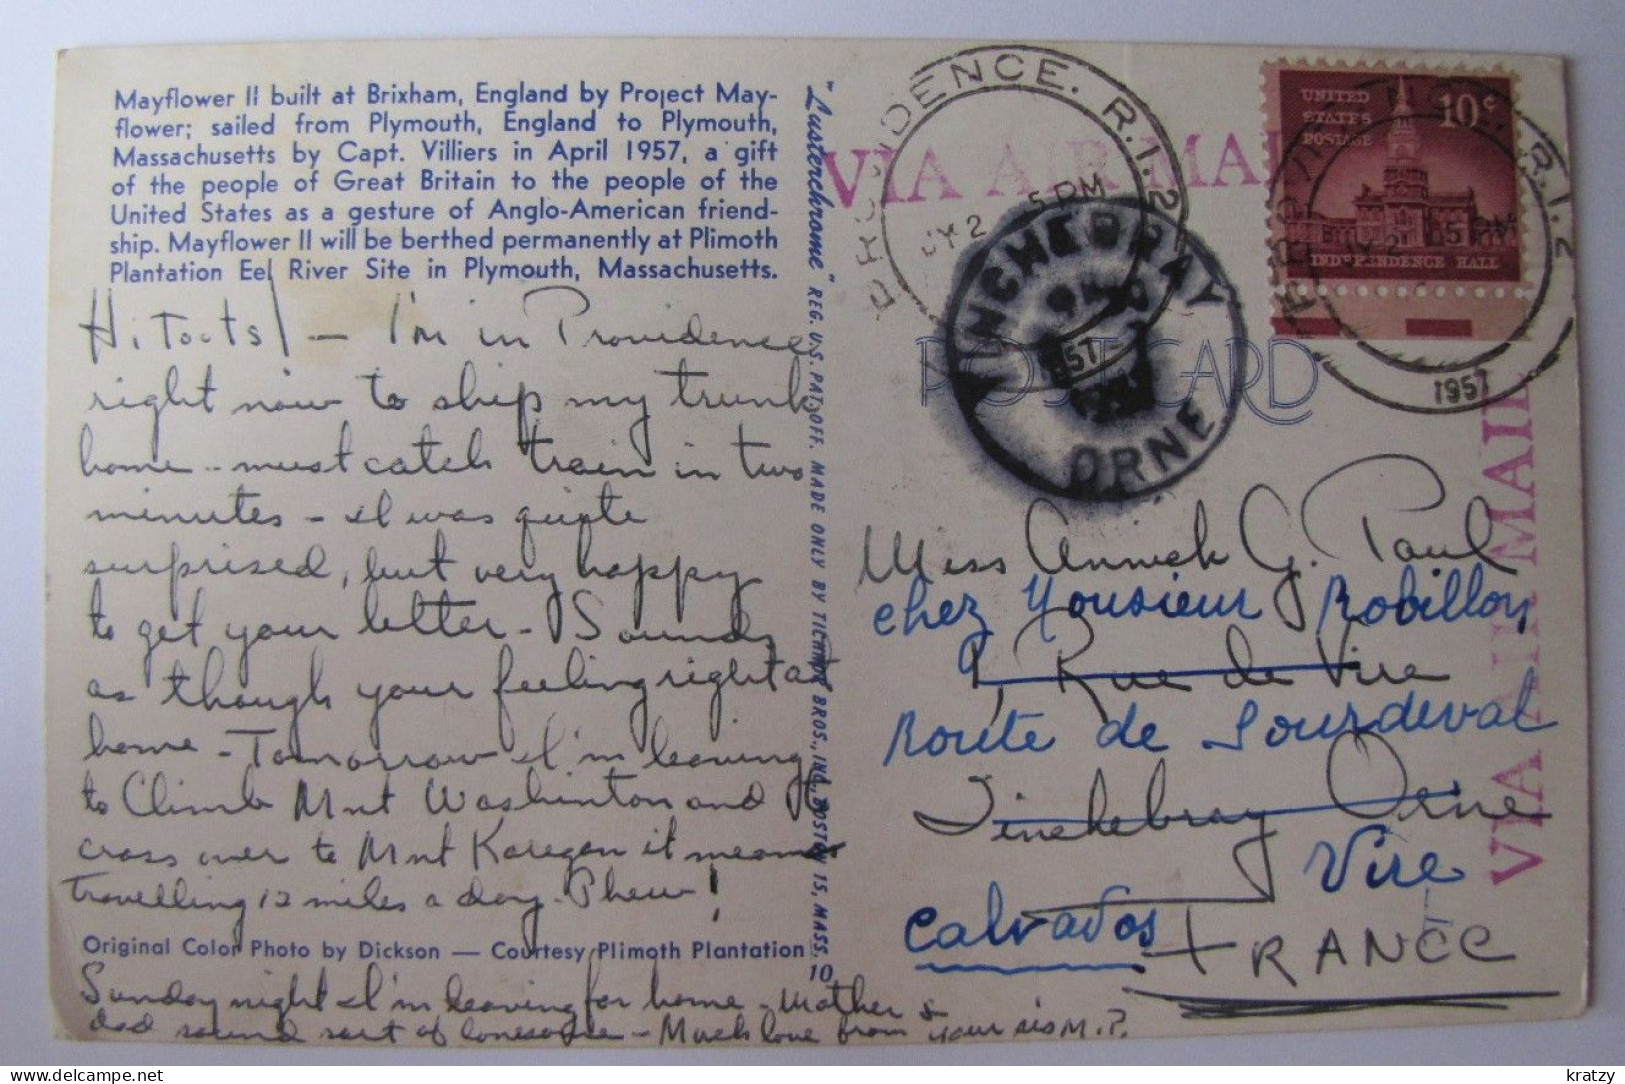 Mayflower II built at Brixham, England by Project May-
flower; sailed from Plymouth, England to Plymouth,
Massachusetts by Capt. Villiers in April 1957, a gift
of the people of Great Britain to the people of the
United States as a gesture of Anglo-American friend-
ship. Mayflower II will be berthed permanently at Plimoth
Plantation Eel River Site in Plymouth, Massachusetts.
Hi Toots! - I'm in Providence
right now to ship my trunk
home - must catch train in two
minutes - I was quite
surprised, but very happy
to get your letter - Sounds
as though your feeling right at
home - Tomorrow I'm leaving
to Climb Mnt Washinton and
cross over to Mnt it means
travelling 12 miles a day. Phew!
Original Color Photo by Dickson — Courtesy Plimoth Plantation
Sunday night I'm leaving for home - Mother &
dad sound sort of lonesome - Much love from your sis M.P.
"Lusterchrome" REG. U.S. PAT. OFF. MADE ONLY BY TICHNOR BROS., INC., BOSTON 15, MASS.
10
VIA AIR MAIL
PROVIDENCE. R.I. 2
JY 2 5 PM
UNITED
STATES
POSTAGE
10¢
INDEPENDENCE HALL
PROVIDENCE. R.I. 2
JY 2 5 PM
1957
TINCHEBRAY
57
ORNE
POST CARD
Miss Annick G. Paul
chez Monsieur Robillon
1, Rue de Vire
Route de Sourdeval
Tinchebray Orne
Vire
Calvados
FRANCE
VIA AIR MAIL
kratzy